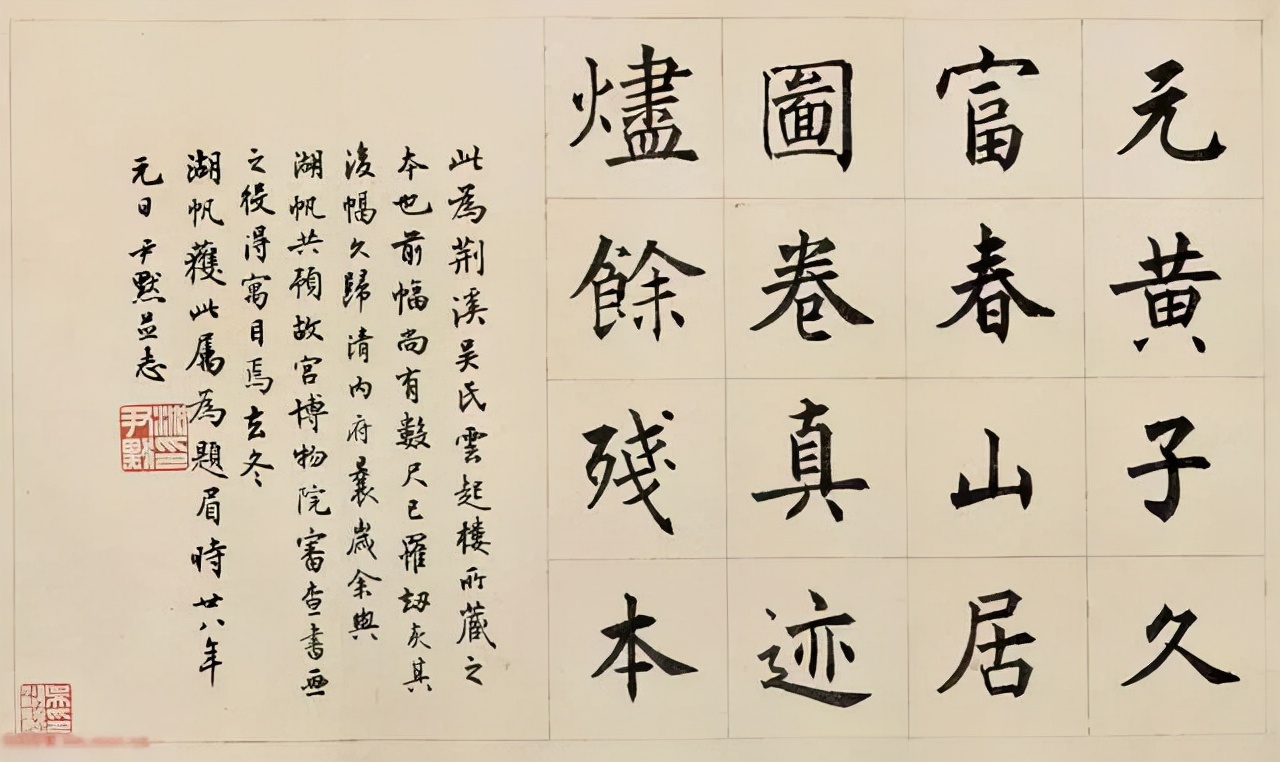 元黄子久
富春山居
圖卷真迹
燼餘殘本
此為荆溪吴氏雲起樓所藏之
本也前幅尚有數尺已罹劫灰其
後幅久歸清内府曩歲余與
湖帆共預故宫博物院審查書画
之役得寓目焉去冬
湖帆獲此属為題眉時廿八年
元日尹默並志